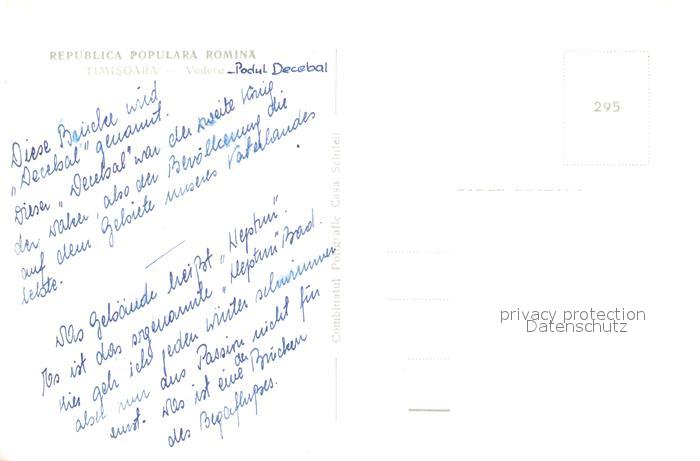 REPUBLICA POPULARA ROMINA
TIMIȘOARA — Vedere - Podul Decebal
Diese Brücke wird
„Decebal" genannt.
Dieser „Decebal" war der zweite König
der Daker, also der Bevölkerung die
auf dem Gebiete unseres Vaterlandes
lebte.
Das Gebäude heißt „Neptun".
Es ist das sogenannte „Neptun" Bad.
Hier geh ich jeden Winter schwimmen
aber nur aus Passion nicht für
ernst. Das ist eine der Brücken
des Begaflusses.
Combinatul Poligrafic Casa Scînteii
295
privacy protection
Datenschutz